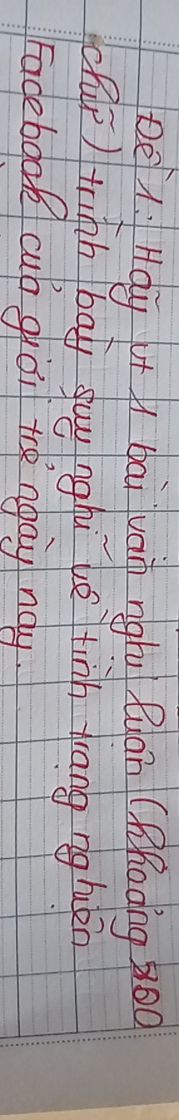 Đề 1: Hãy vt 1 bài văn nghị luận (khoảng
chữ) trình bày suy nghĩ về tình trạng nghiện
Facebook của giới trẻ ngày nay.